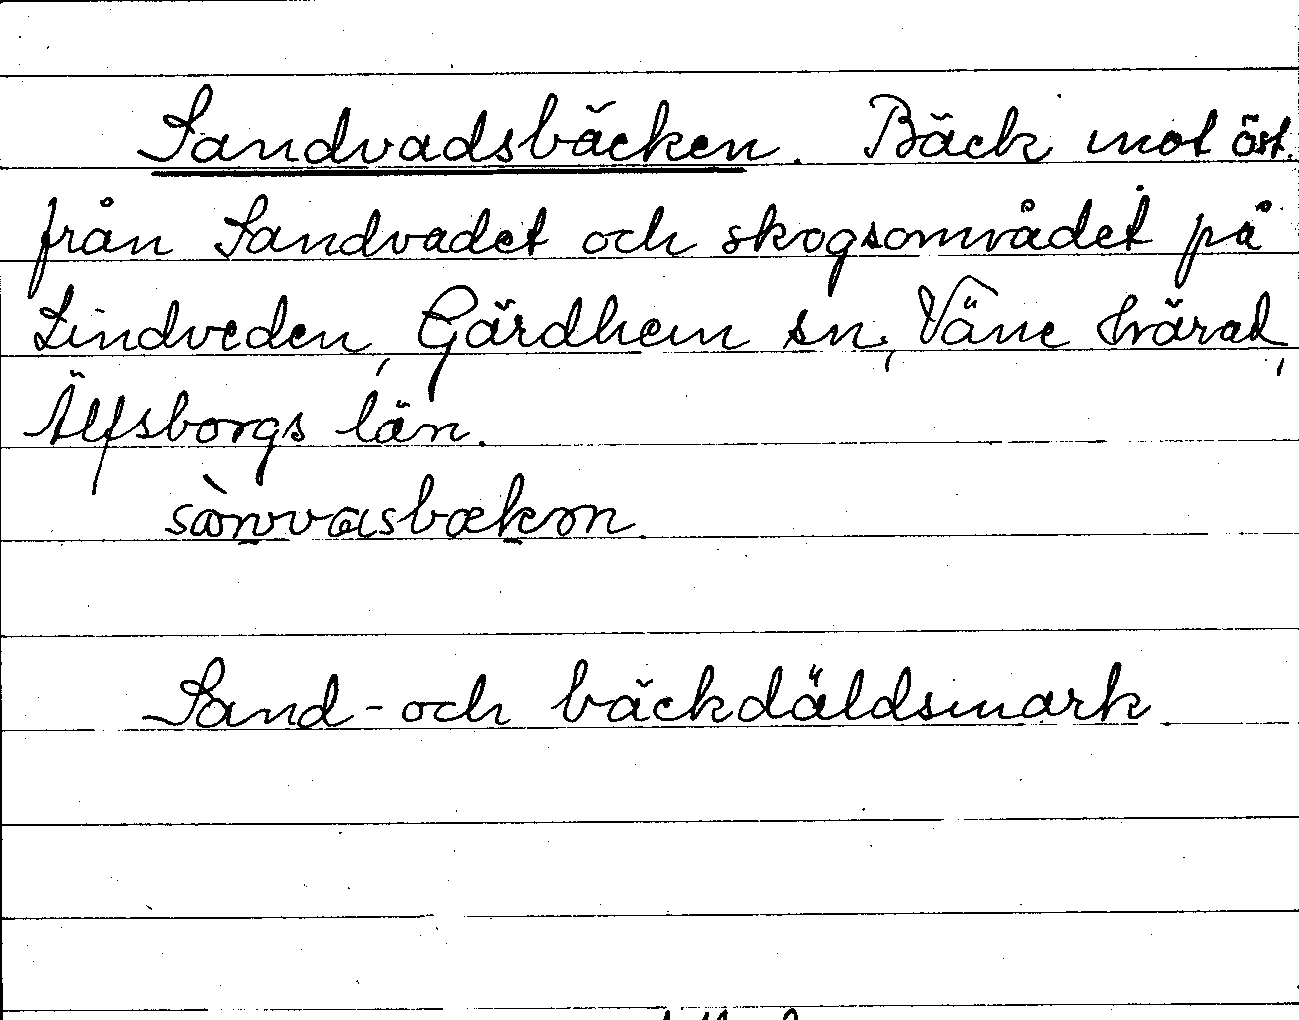 Sandvadsbäcken. Bäck mot öst.
från Sandvadet och skogsområdet på
Lindveden, Gärdhem sn, Väne härad,
Älfsborgs län.
Sand- och bäckdäldsmark.